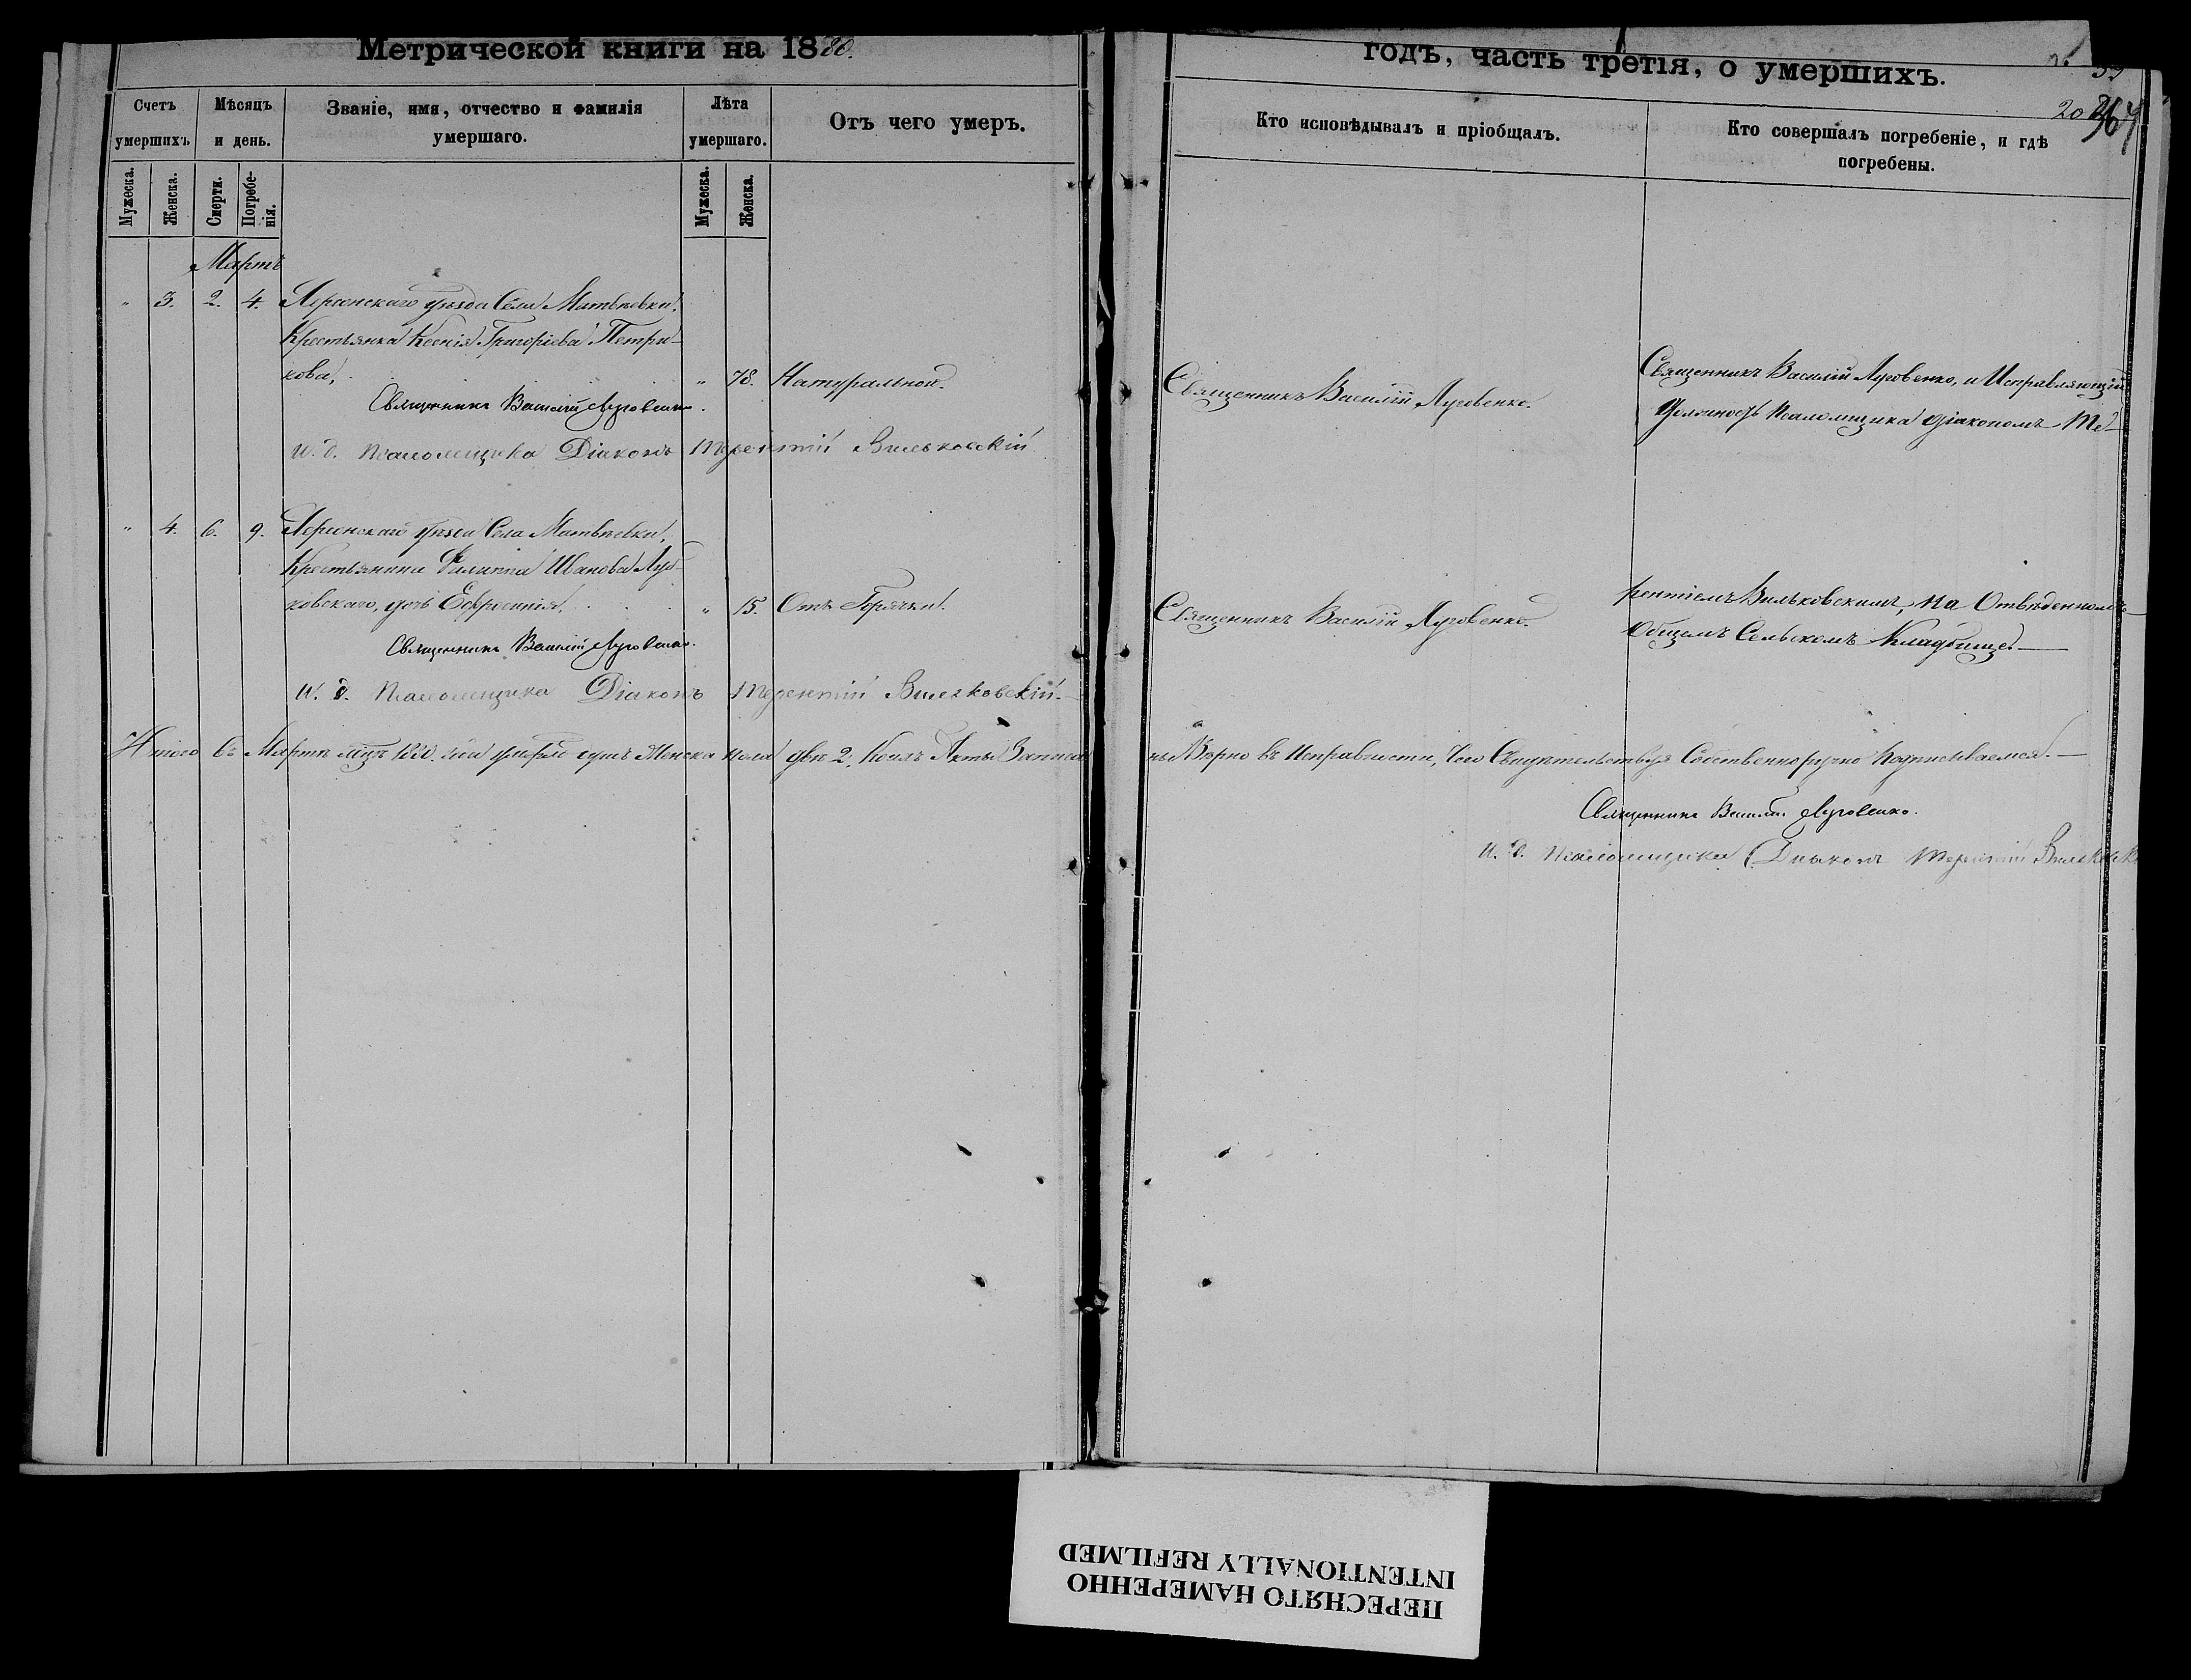 Метрической книги на 1880.
Счетъ умершихъ
Мѣсяцъ и день.
Званіе, имя, отчество и фамилія умершаго.
Лѣта умершаго.
Отъ чего умеръ.
Мужеска.
Женска.
Смерти.
Погребенія.
Мужеска.
Женска.
Мартъ
" 3. 2. 4. Херсонскаго уѣзда Села Матвѣевки,
Крестьянка Ксенія Григоріева Петри-
кова, " 78. Натуральной.
Священникъ Василій Луговенко.
И. д. Псаломщика Діаконъ Терентій Вильковскій
" 4. 6. 9. Херсонскаго уѣзда Села Матвѣевки,
Крестьянина Филиппа Иванова
ковскаго, дочь Евфросинія, " 15. Отъ Горячки.
Священникъ Василій Луговенко.
И. д. Псаломщика Діаконъ Терентій Вильковскій.
Итого въ Мартѣ мцѣ 1880. года умерло душъ Женска пола двѣ 2, Коихъ Акты Записа
годъ, часть третія, о умершихъ.
Кто исповѣдывалъ и пріобщалъ.
Кто совершалъ погребеніе, и гдѣ погребены.
Священникъ Василій Луговенко.
Священникъ Василій Луговенко, и Исправляющій
Должность Псаломщика Діакономъ Те-
Священникъ Василій Луговенко.
рентіемъ Вильковскимъ, на Отведенномъ
Общемъ Сельскомъ Кладбищѣ
ны Вѣрно въ Исправности, Чего Свидѣтельствуя Собственноручно Подписываемся.
Священникъ Василій Луговенко.
И. д. Псаломщика Діаконъ Терентій
ПЕРЕСНЯТО НАМЕРЕННО
INTENTIONALLY REFILMED